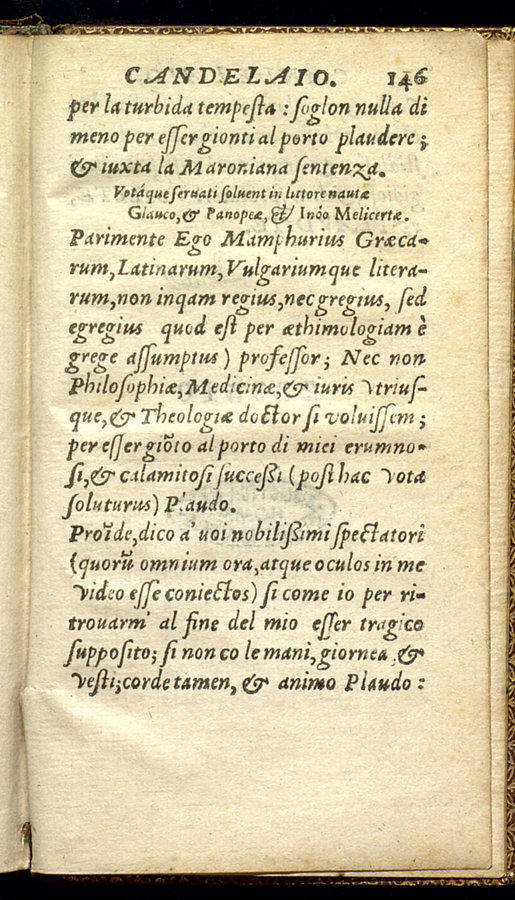 CANDELAIO. 146
per la turbida tempesta : soglon nulla di
meno per esser gionti al porto plaudere ;
& iuxta la Maroniana sentenza.
Votáque seruati soluent in littore nautæ
Glauco, & Panopeæ, & Inóo Melicertæ.
Parimente Ego Mamphurius Græca-
rum, Latinarum, Vulgariumque litera-
rum, non inqam regius, nec gregius, sed
egregius quod est per æthimologiam è
grege assumptus ) professor ; Nec non
Philosophiæ, Medicinæ, & iuris vtrius-
que, & Theologiæ doctor si voluissem ;
per esser giōto al porto di miei erumno-
si, & calamitosi successi ( post hac vota
soluturus ) Plaudo.
Proīde, dico a' uoi nobilissimi spectatori
(quorū omnium ora, atque oculos in me
video esse coniectos) si come io per ri-
trouarm' al fine del mio esser tragico
supposito ; si non co le mani, giornea , &
vesti; corde tamen, & animo Plaudo :